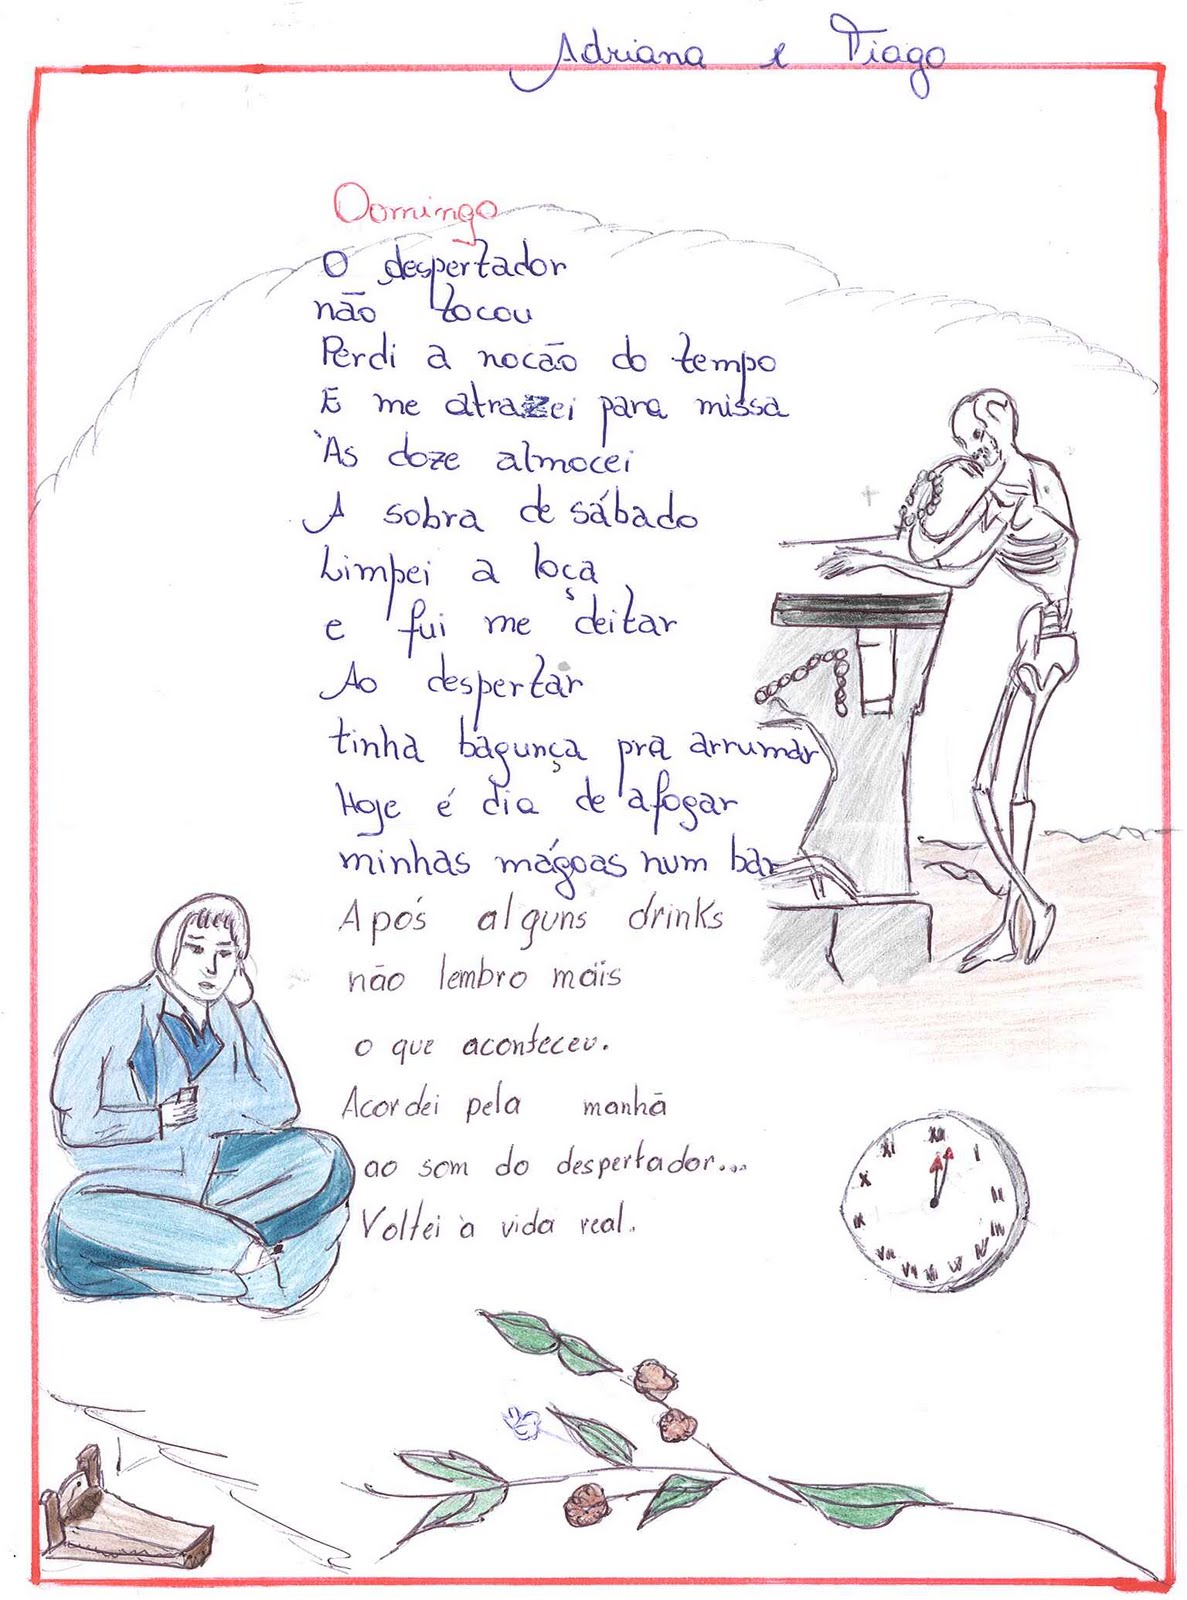 Adriana e Tiago
Domingo
O despertador
não tocou
Perdi a nocão do tempo
E me atrazei para missa
Às doze almocei
A sobra de sábado
Limpei a loça
e fui me deitar
Ao despertar
tinha bagunça pra arrumar
Hoje é dia de afogar
minhas mágoas num bar
Após alguns drinks
não lembro mais
o que aconteceu.
Acordei pela manhã
ao som do despertador...
Voltei à vida real.
XII
I
II
III
IV
V
VI
VII
VIII
IX
X
XI